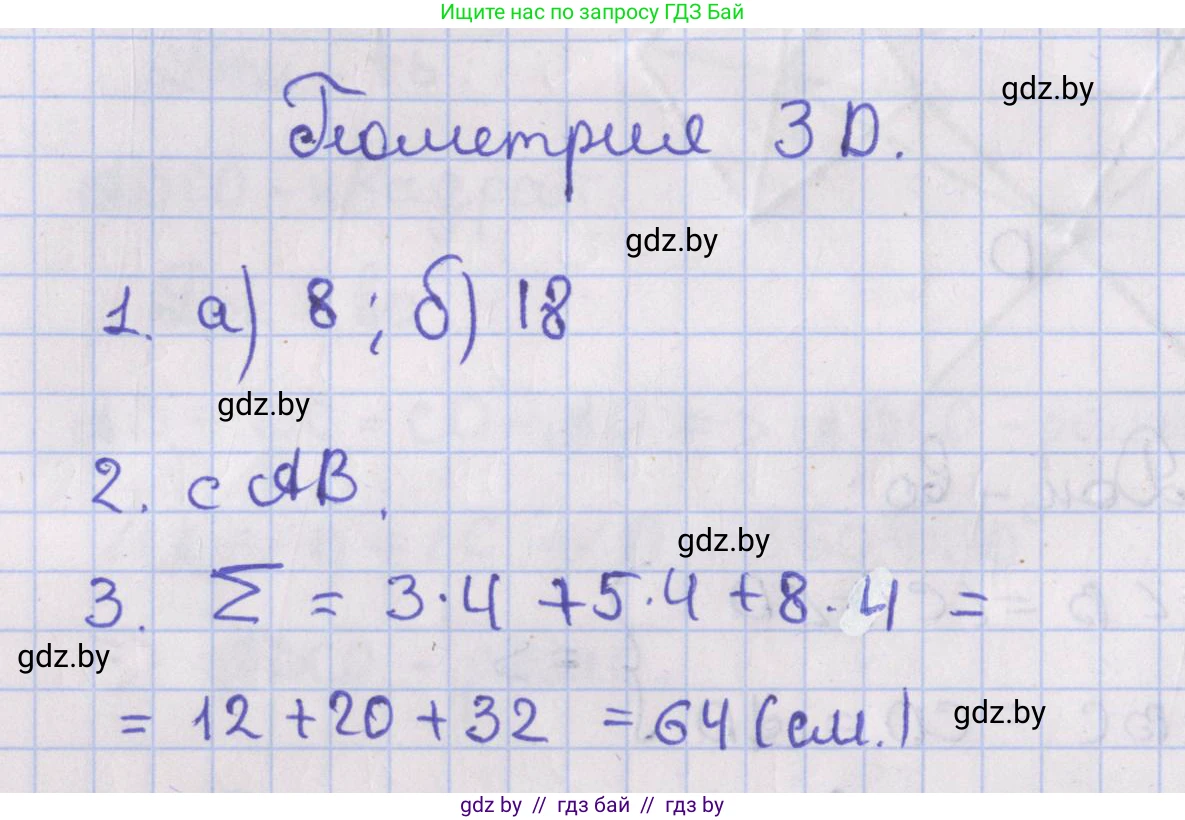 Ищите нас по запросу ГДЗ Бай
Геометрия 3D.
gdz.by
gdz.by
1. а) 8 ; б) 18
gdz.by
2. с АВ.
gdz.by
3. Σ = 3·4 + 5·4 + 8·4 =
gdz.by
= 12 + 20 + 32 = 64 (см.)
gdz.by
gdz by // гдз бай // гдз by